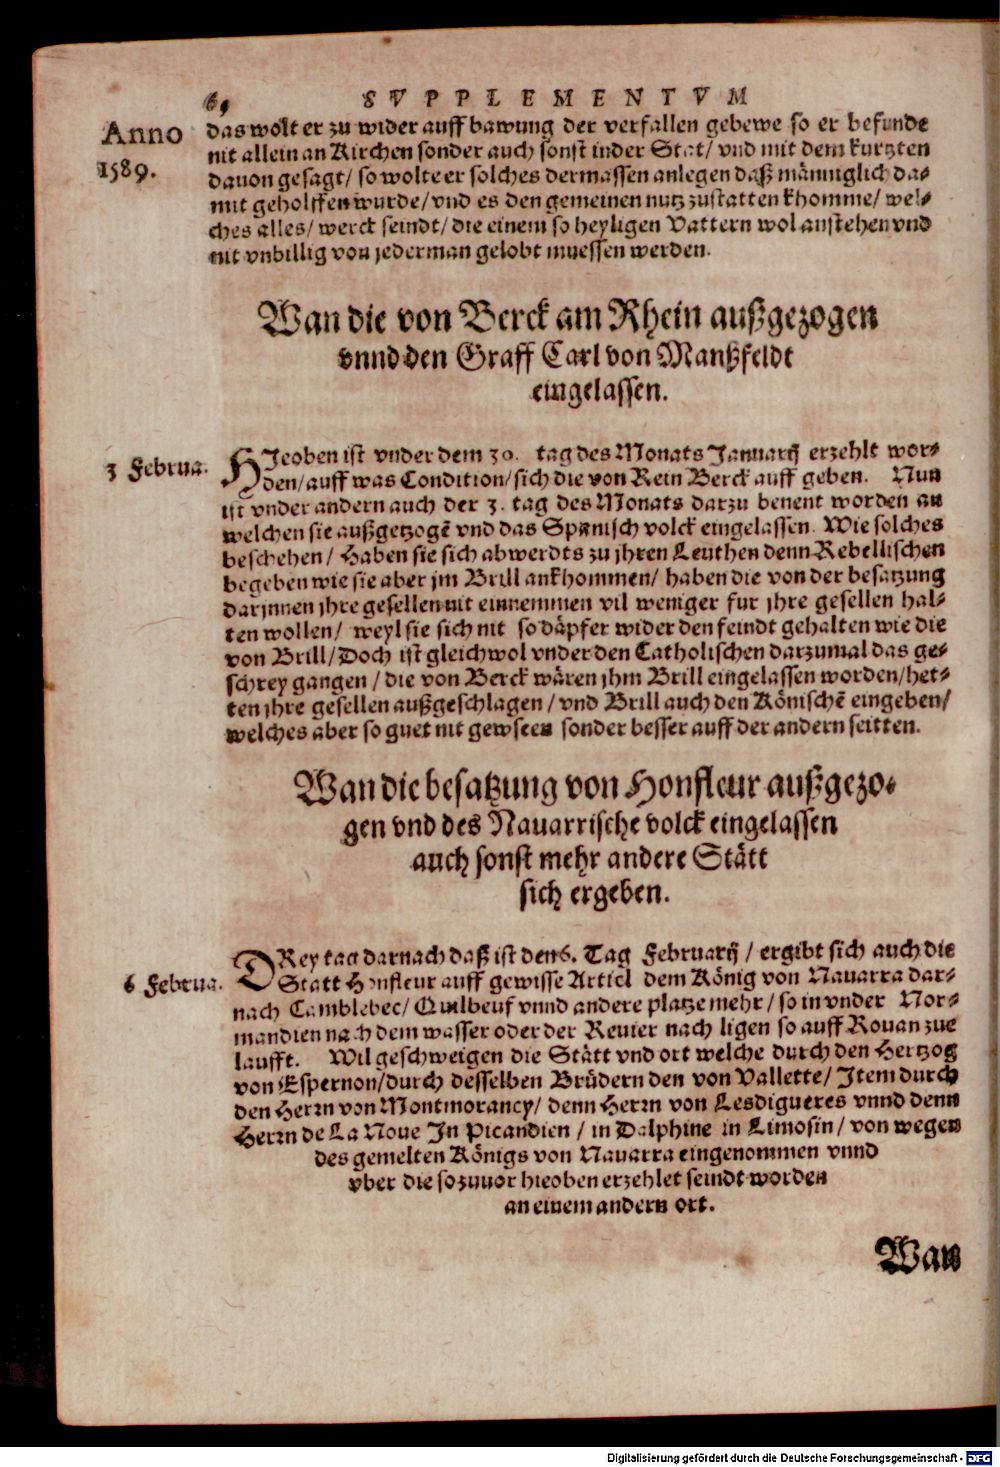 SVPPLEMENTVM
Anno
1589.
das wolt er zu wider auff bawung der verfallen gebewe so er befunde
nit allein an Kirchen sonder auch sonst in der Stat/ vnd mit dem kurtzten
dauon gesagt/ so wolte er solches dermassen anlegen daß männiglich da-
mit geholffen wurde/ vnd es den gemeinen nutz zustatten khomme/ wel-
ches alles/ werck seindt/ die einem so heyligen Vattern wol anstehen vnd
nit vnbillig von jederman gelobt muessen werden.
Wan die von Berck am Rhein außgezogen
vnnd den Graff Carl von Manßfeldt
eingelassen.
3 Februa.
HIeoben ist vnder dem 30. tag des Monats Januarij erzehlt wor-
den/ auff was Condition/ sich die von Rein Berck auff geben. Nun
ist vnder andern auch der 3. tag des Monats darzu benent worden an
welchen sie außgetzogē vnd das Spanisch volck eingelassen. Wie solches
beschehen/ Haben sie sich abwerdts zu jhren Leuthen denn Rebellischen
begeben wie sie aber jm Brill ankhommen/ haben die von der besatzung
darjnnen jhre gesellen nit einnemmen vil weniger fur jhre gesellen hal-
ten wollen/ weyl sie sich nit so däpfer wider den feindt gehalten wie die
von Brill/ Doch ist gleichwol vnder den Catholischen darzumal das ge-
schrey gangen/ die von Berck wären jhm Brill eingelassen worden/ het-
ten jhre gesellen außgeschlagen/ vnd Brill auch den Könischē eingeben/
welches aber so guet nit gewseen sonder besser auff der andern seitten.
Wan die besatzung von Honfleur außgezo-
gen vnd des Nauarrische volck eingelassen
auch sonst mehr andere Stätt
sich ergeben.
6 Februa.
DRey tag darnach daß ist den 6. Tag Februarij/ ergibt sich auch die
Statt Honfleur auff gewisse Articl dem König von Nauarra dar-
nach Camblebec/ Quilbeuf vnnd andere platze mehr/ so in vnder Nor-
mandien nach dem wasser oder der Reuier nach ligen so auff Rouan zue
laufft. Wil geschweigen die Stätt vnd ort welche durch den Hertzog
von Espernon/ durch desselben Brüdern den von Vallette/ Item durch
den Herrn von Montmorancy/ denn Herrn von Lesdigueres vnnd denn
Herrn de La Noue In Picandien/ in Dalphine in Limosin/ von wegen
des gemelten Königs von Nauarra eingenommen vnnd
vber die so zuuor hieoben erzehlet seindt worden
an einem andern ort.
Wan
Digitalisierung gefördert durch die Deutsche Forschungsgemeinschaft - DFG